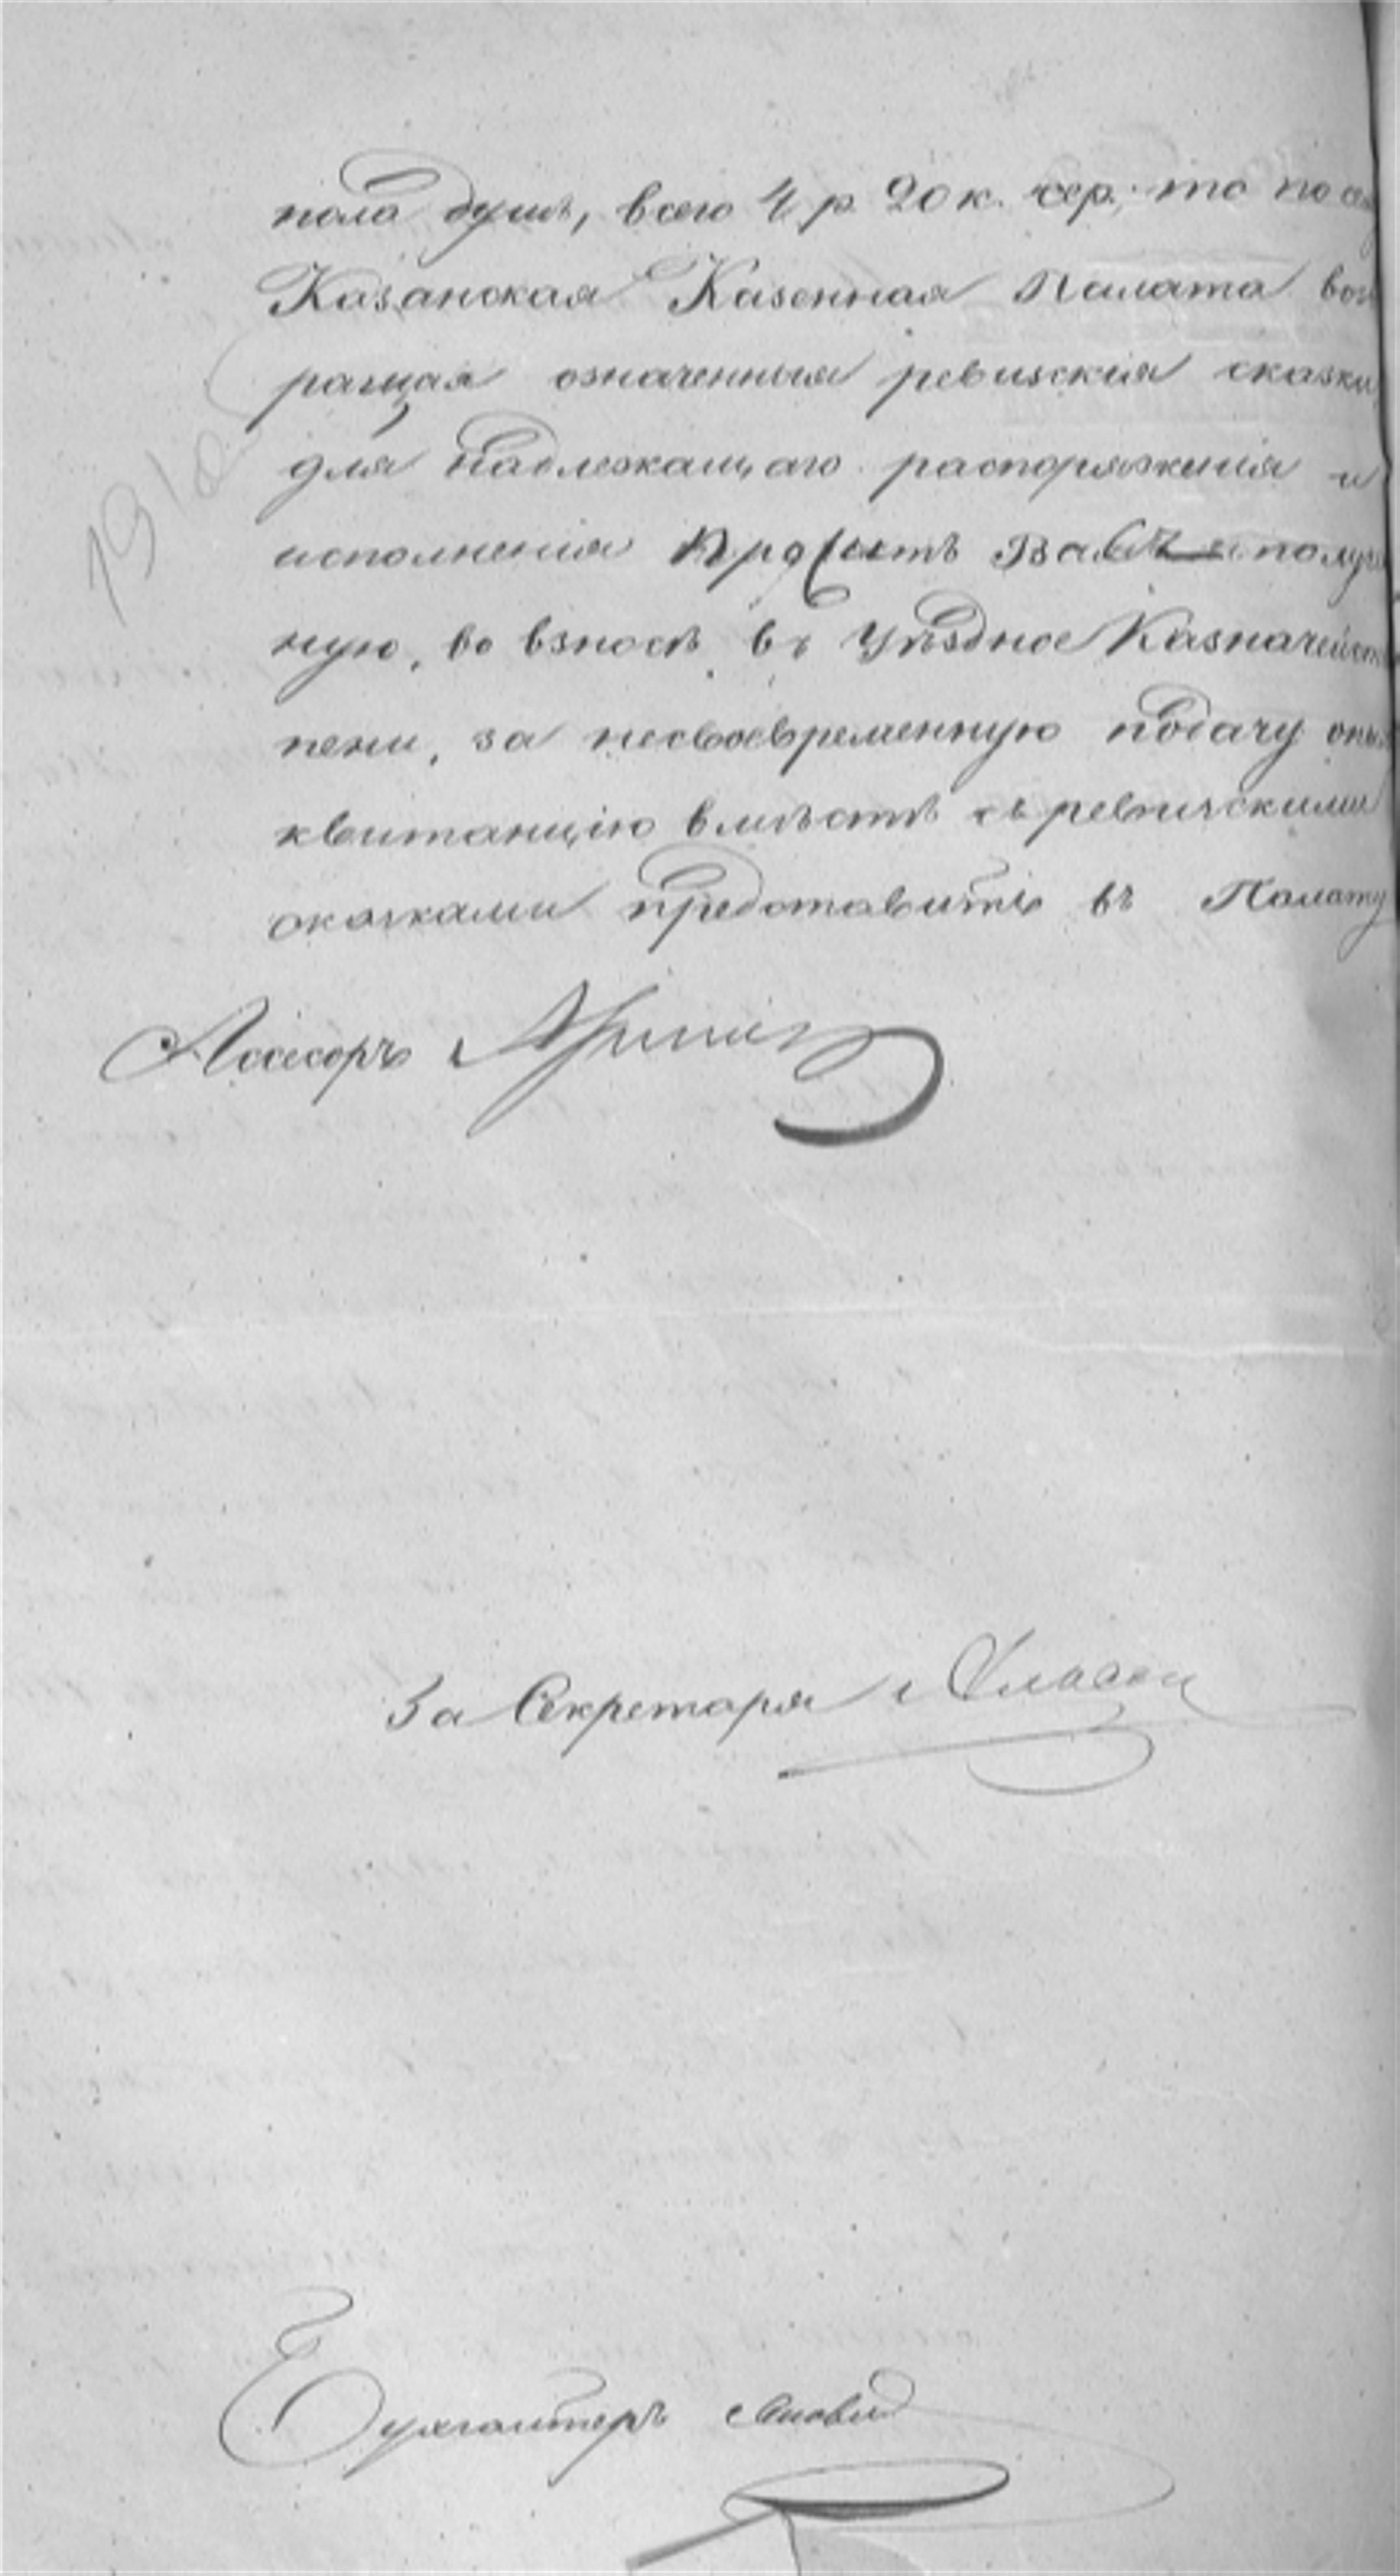 пола душъ, всего 4 р. 20 к. сер., то по се
Казанская Казенная Палата воз
ращая означенныя ревизскія сказки,
для надлежащаго распоряженія и
исполненія проситъ Васъ получе
ную, во взносѣ въ Уѣздное Казначейст
пени, за несвоевременную подачу оны
квитанцію вмѣстѣ съ ревизскими
сказками представить въ Палату
Ассесоръ
За Секретаря
Бухгалтеръ